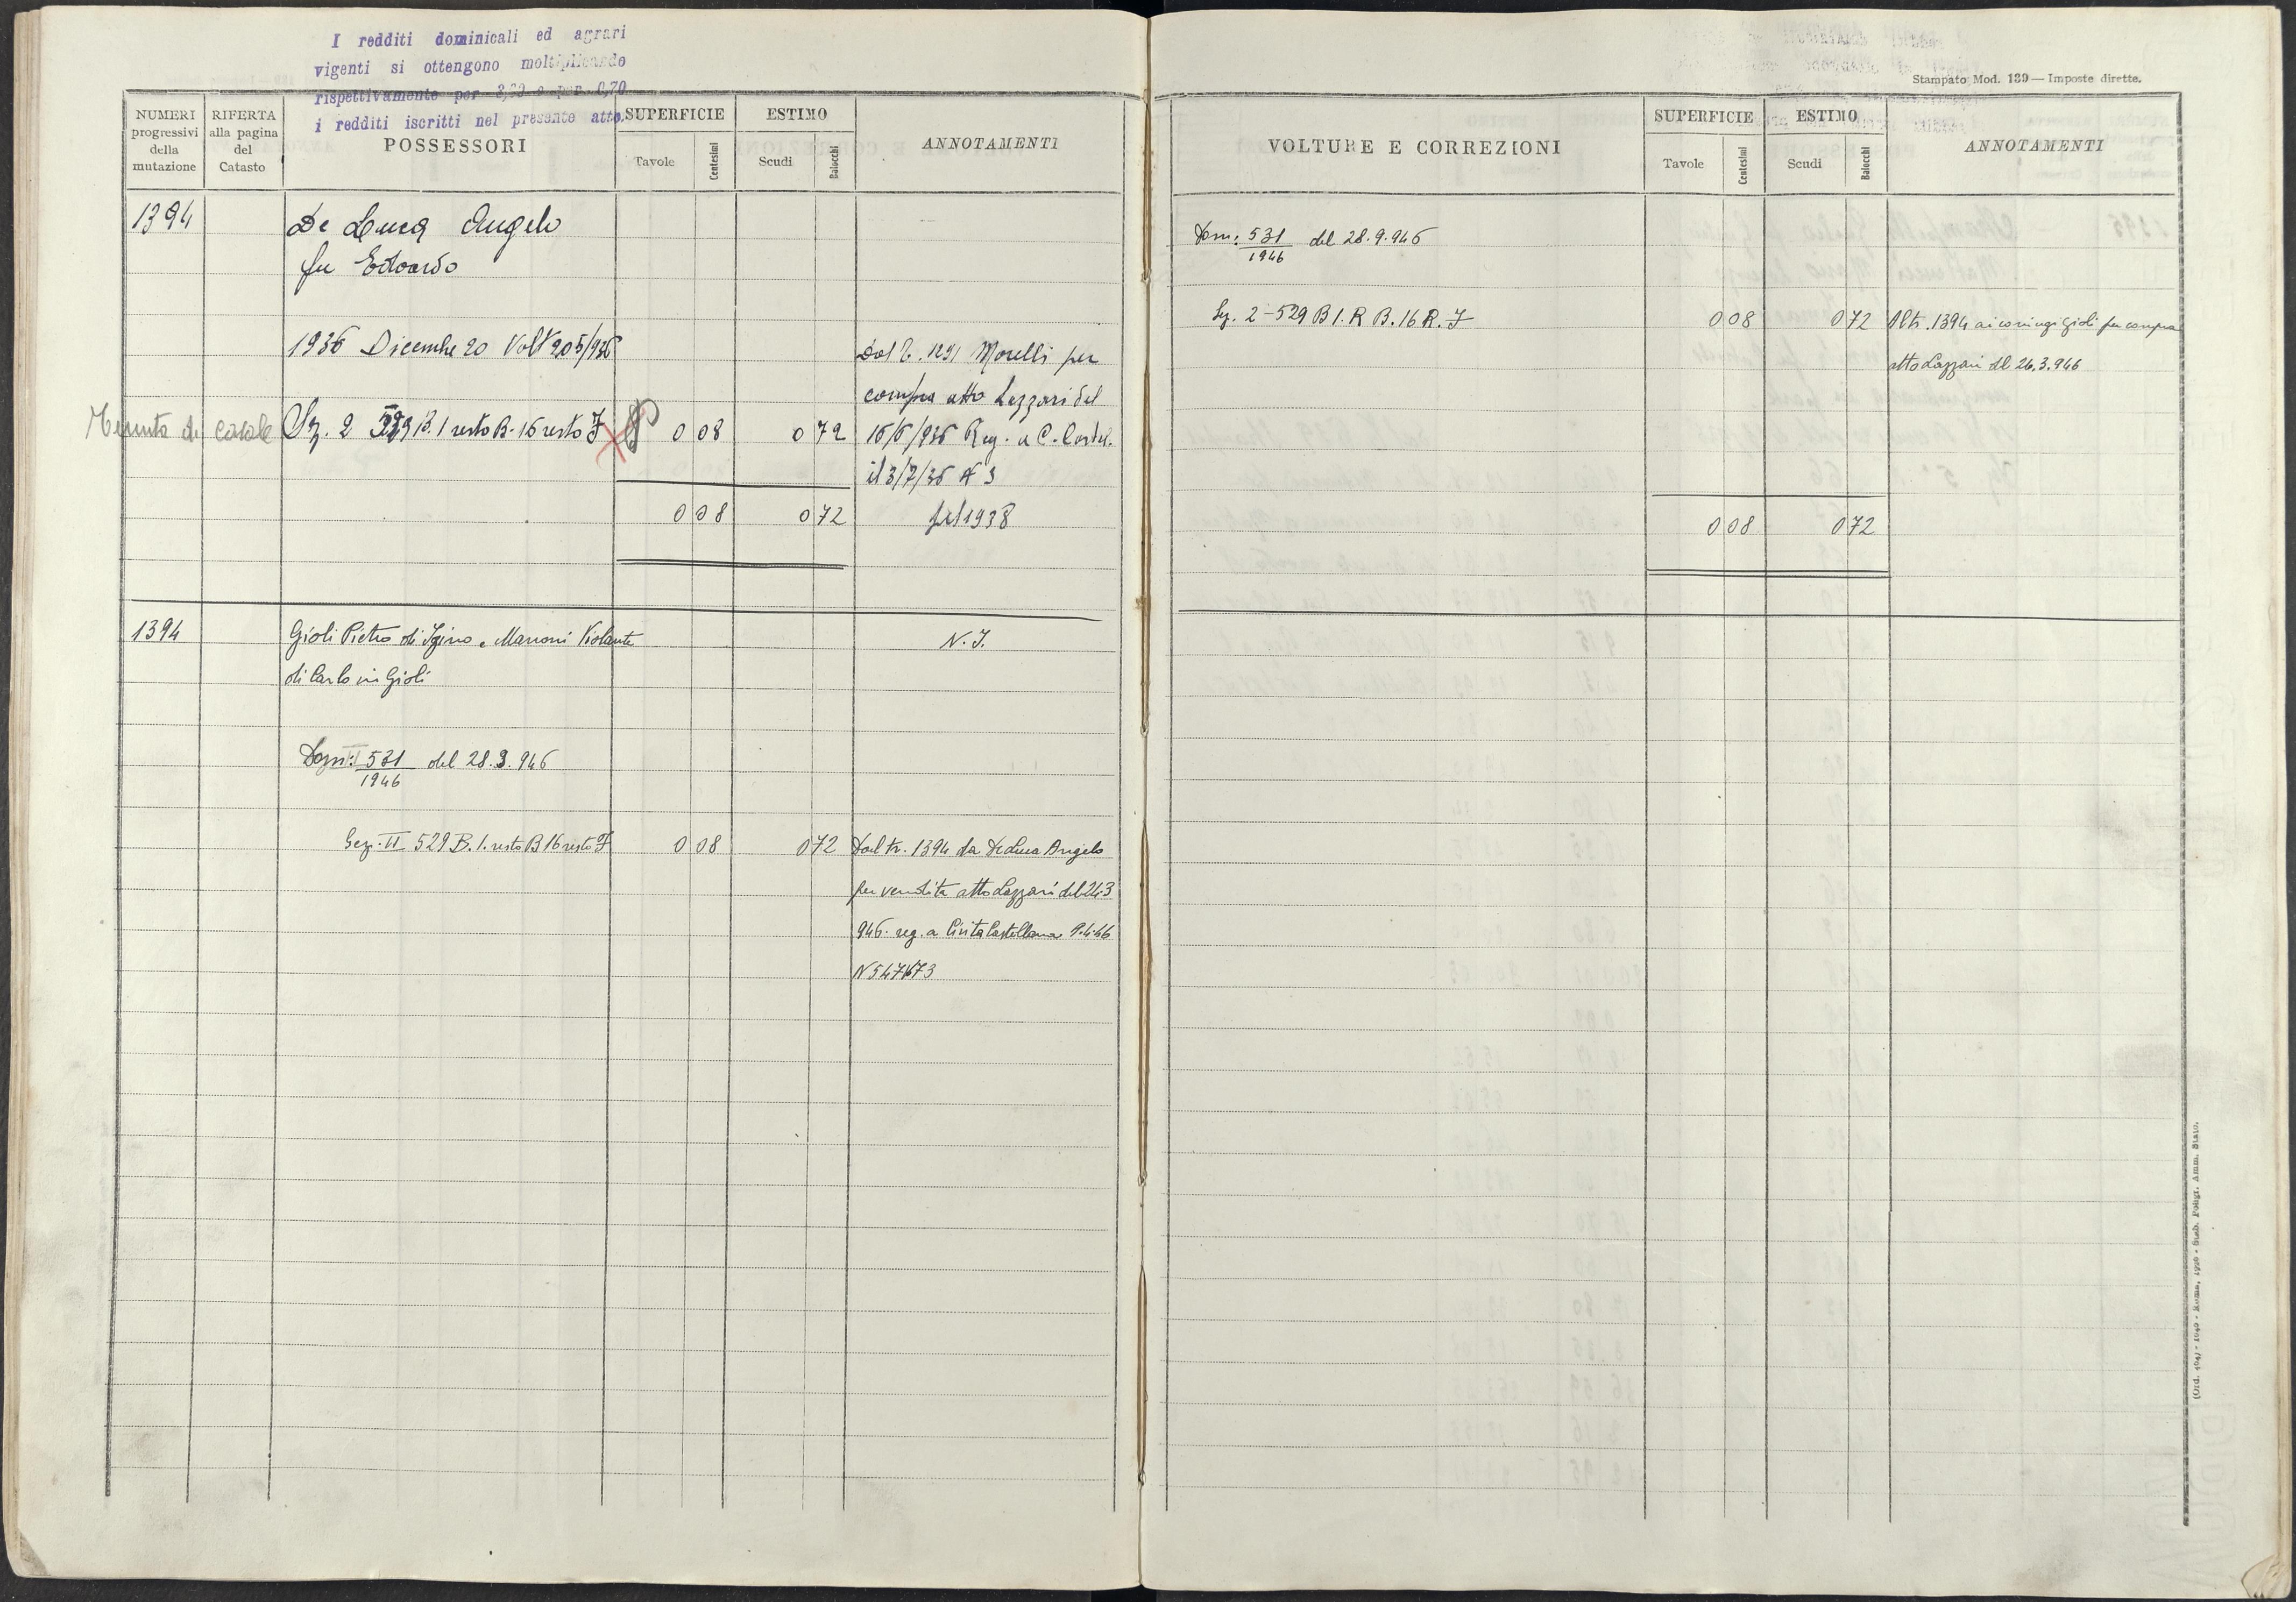 I redditi dominicali ed agrari
vigenti si ottengono moltiplicando
rispettivamente per e per 0,70
i redditi iscritti nel presente atto.
NUMERI progressivi della mutazione
RIFERTA alla pagina del Catasto
POSSESSORI
SUPERFICIE
Tavole
Centesimi
ESTIMO
Scudi
Baiocchi
ANNOTAMENTI
1394
De Luca Angelo
fu Edoardo
1936 Dicembre 20 Volt 205/936
Dal T. 1291 Morelli per
compra atto Lazzari del
Tenuta di casale
Sez. 2 529 B. 1 resto B. 16 resto I 0 08 0 72 16/6/936 Reg. a C. Castel.
il 3/7/36 N 3
0 08 0 72 1938
1394
Gioli Pietro di Igino e Marroni Violante
di Carlo in Gioli
N. I.
Dom: 531/1946 del 28.9.946
Sez. II 529 B. 1. resto B 16 resto I 0 08 0 72 Dal tr. 1394 da De Luca Angelo
per vendita atto Lazzari del 24.3
946. reg. a Civita Castellana
Stampato Mod. 139 — Imposte dirette.
VOLTURE E CORREZIONI
SUPERFICIE
Tavole
Centesimi
ESTIMO
Scudi
Baiocchi
ANNOTAMENTI
Dom: 531/1946 del 28.9.946
Sez. 2 - 529 B 1. R B. 16 R. I 0 08 0 72 Al tr. 1394 ai coniugi Gioli per compra
atto Lazzari del 26.3.946
0 08 0 72
Roma, Stab. Poligr. Amm. Stato.